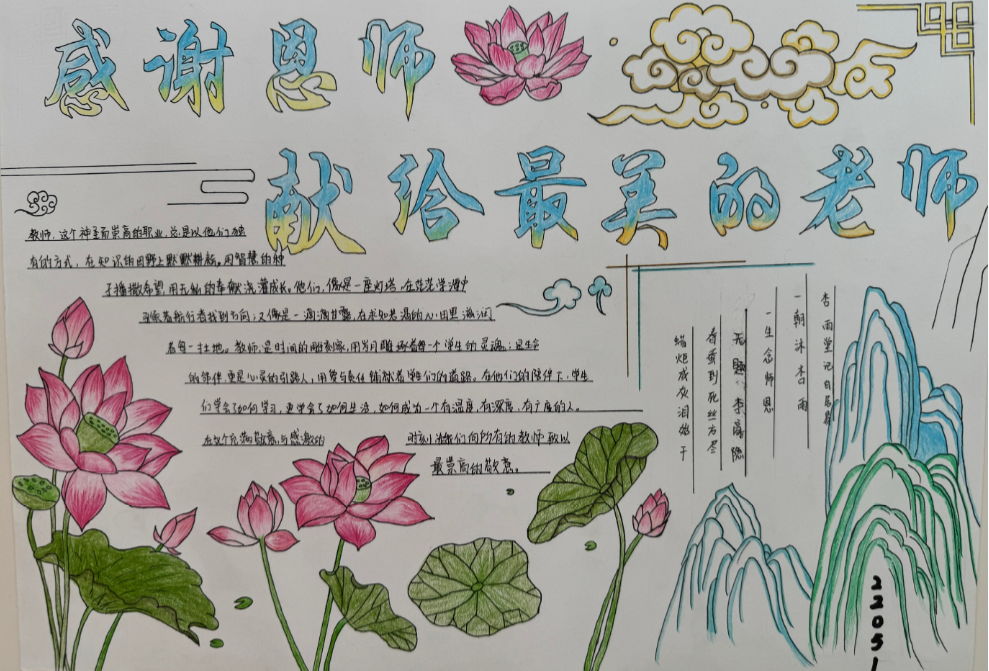 感谢恩师
献给最美的老师
教师，这个神圣而崇高的职业，总是以他们独
有的方式，在知识的田野上默默耕耘。用智慧的种
子播撒希望，用无私的奉献浇灌成长。他们，像是一座灯塔，在茫茫学海中
为航行者找到方向；又像是一滴滴甘露，在求知若渴的心田里滋润
着每一寸土地。教师，是时间的雕刻家，用岁月雕琢着每一个学生的灵魂；是生命
的伙伴，更是心灵的引路人，用爱与责任铺就着学生们的道路。在他们的陪伴下，学生
们学会了如何学习，更学会了如何生活，如何成为一个有温度、有深度、有广度的人。
在这个充满敬意与感激的时刻，让我们向所有的教师致以
最崇高的敬意。
杏雨堂记
一朝沐杏雨
一生念师恩
无题 李商隐
春蚕到死丝方尽
蜡炬成灰泪始干
22051